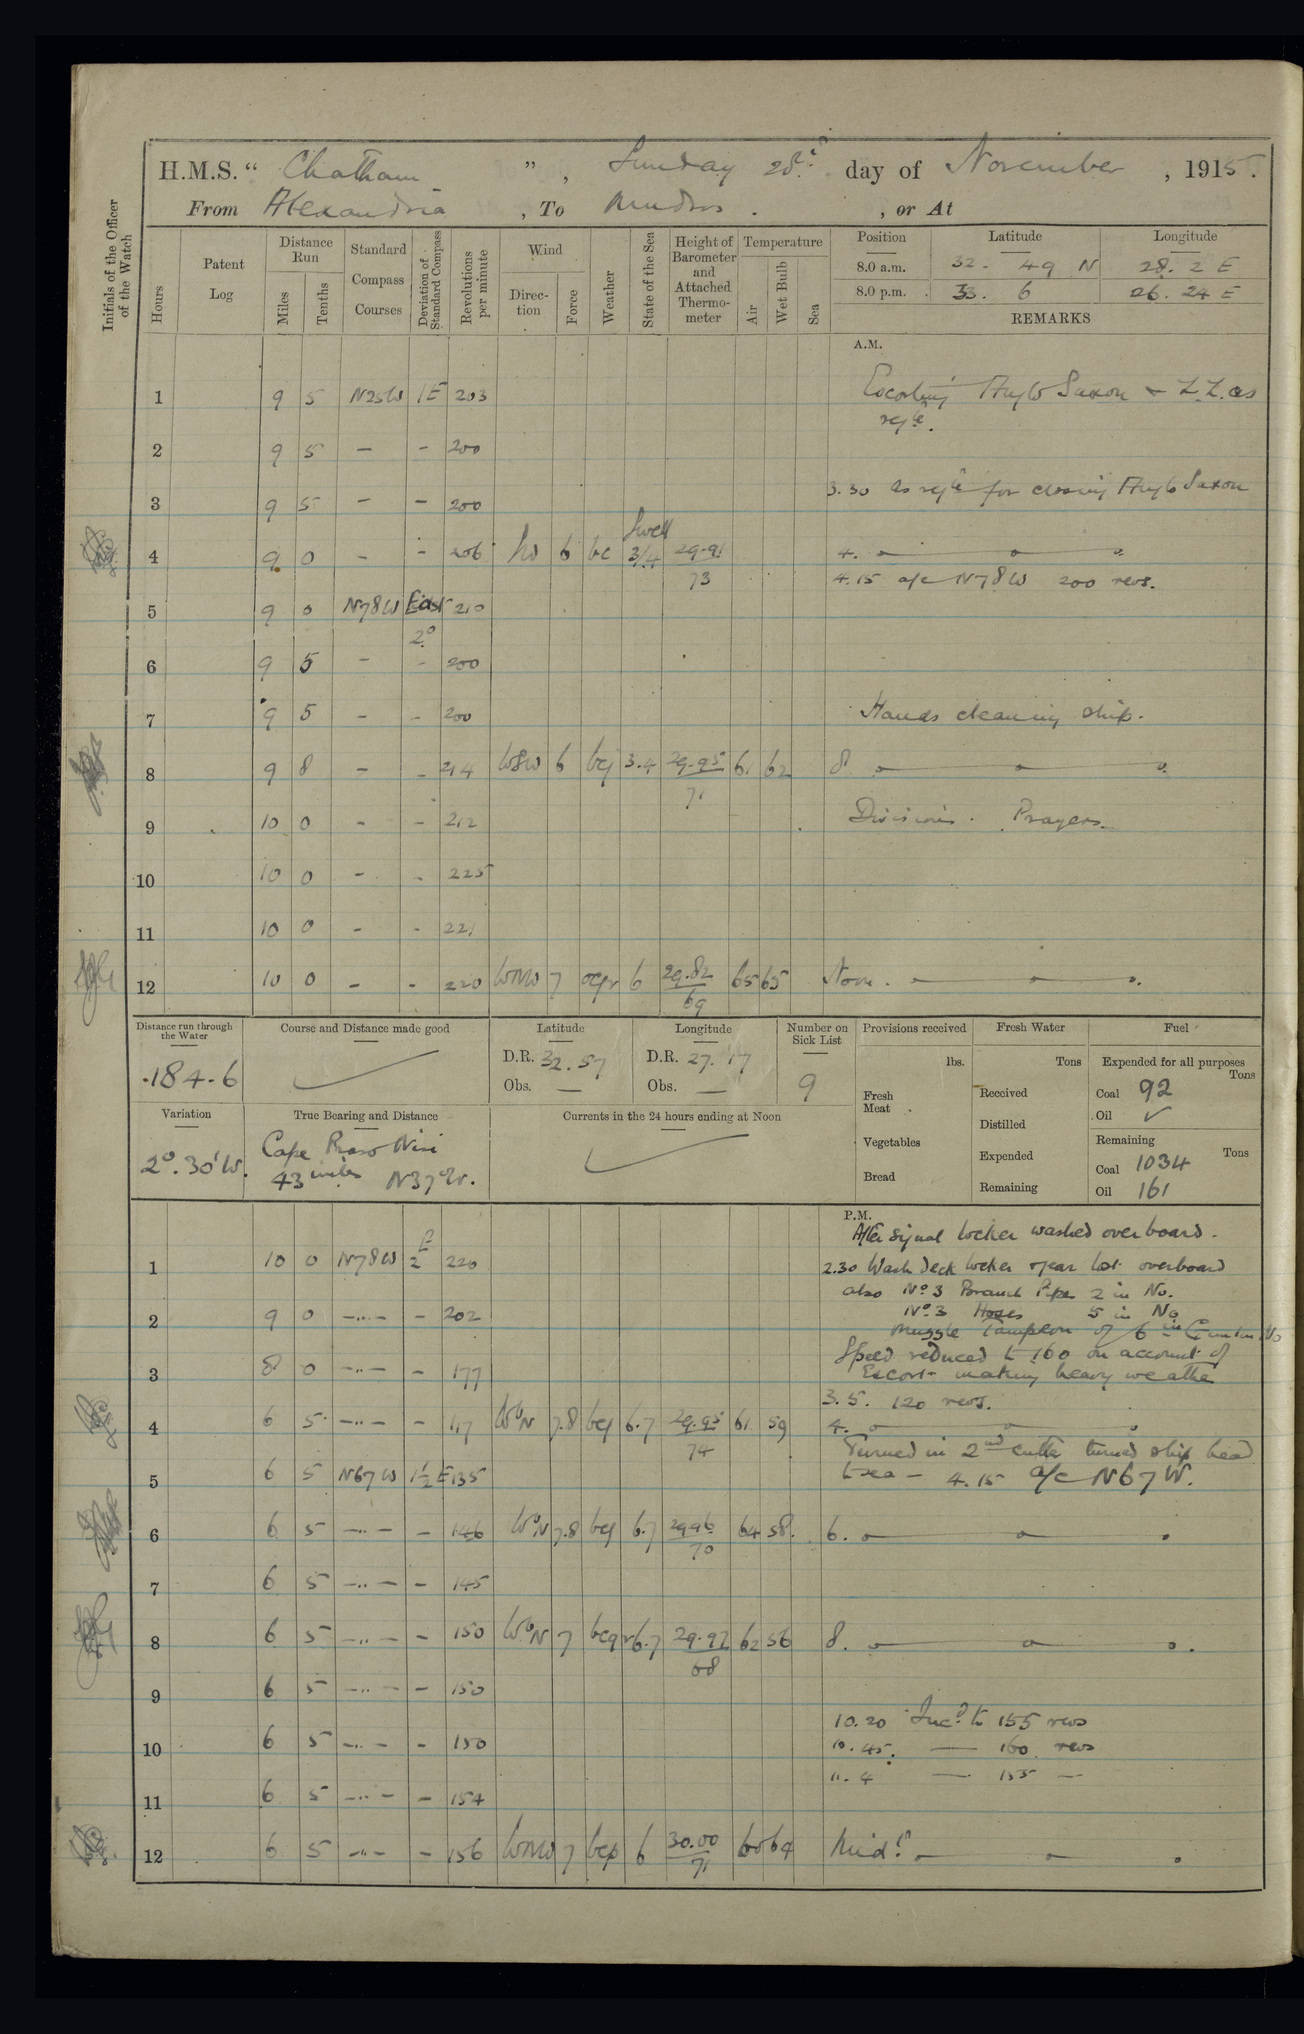 H.M.S. “ Chatham ” , Sunday 28th day of November , 1915.
From Alexandria , To Mudros . , or At
Initials of the Officer of the Watch
Hours
Patent Log
Distance Run
Miles
Tenths
Standard Compass Courses
Deviation of Standard Compass
Revolutions per minute
Wind
Direction
Force
Weather
State of the Sea
Height of Barometer and Attached Thermometer
Temperature
Air
Wet Bulb
Sea
Position Latitude Longitude
8.0 a.m. 32. 49 N 28. 2 E
8.0 p.m. 33. 6 26. 24 E
REMARKS
A.M.
1 9 5 N25W 1E 203 Escorting Anglo Saxon & Z.Z. as
reqte.
2 9 5 — – 200
3 9 5 – – 200 3.30 as reqte for closing Anglo Saxon
Swell
4 9 0 – – 206 SW 6 bc 3/4 29.91 4.
73
4.15 a/c N78W 200 revs.
5 9 0 N78W East 210
2°
6 9 5 – – 200
7 9 5 – – 200 Hands cleaning ship.
8 9 8 – – 214 WSW 6 bcq 3.4 29.95 61 62 8
71
9 10 0 – – 212 Divisions. Prayers.
10 10 0 – – 225
11 10 0 – – 221
12 10 0 – – 220 WNW 7 ocqr 6 29.82 65 65 Noon.
69
Distance run through the Water
184.6
Course and Distance made good
Latitude
D.R. 32.57
Obs. —
Longitude
D.R. 27.17
Obs. —
Number on Sick List
9
Provisions received
lbs.
Fresh Meat
Vegetables
Bread
Fresh Water
Tons
Received
Distilled
Expended
Remaining
Fuel
Expended for all purposes
Tons
Coal 92
Oil ✓
Remaining
Tons
Coal 1034
Oil 161
Variation
2°.30'W.
True Bearing and Distance
Cape Praso Nisi
43 miles N37°W.
Currents in the 24 hours ending at Noon
P.M.
After signal locker washed overboard.
1 10 0 N78W 2 E 220 2.30 Wash deck locker & gear lost overboard
also No 3 Branch Pipes 2 in No.
No 3 Hoses 5 in No
2 9 0 —..— – 202 Muzzle Tampeon of 6 in Gun
3 8 0 —..— – 177 Speed reduced to 160 on account of
Escort making heavy weather
3.5. 120 revs.
4 6 5 —..— – 117 WbN 7.8 bcq 6.7 29.95 61 59 4.
74
Turned in 2nd cutter turned ship head
5 6 5 N67W 1½ E 135 to sea – 4.15 a/c N67W.
6 6 5 —..— – 146 WbN 7.8 bcq 6.7 29.96 64 58. 6.
70
7 6 5 —..— – 145
8 6 5 —..— – 150 WbN 7 bcqr 6.7 29.97 62 56 8.
68
9 6 5 —..— – 150
10.20 Incd to 155 revs
10 6 5 —..— – 150 10.45. — 160 revs
11.4 — 155 —
11 6 5 —..— – 154
12 6 5 —..— – 156 WNW 7 bcp 6 30.00 60 64 Midt.
71